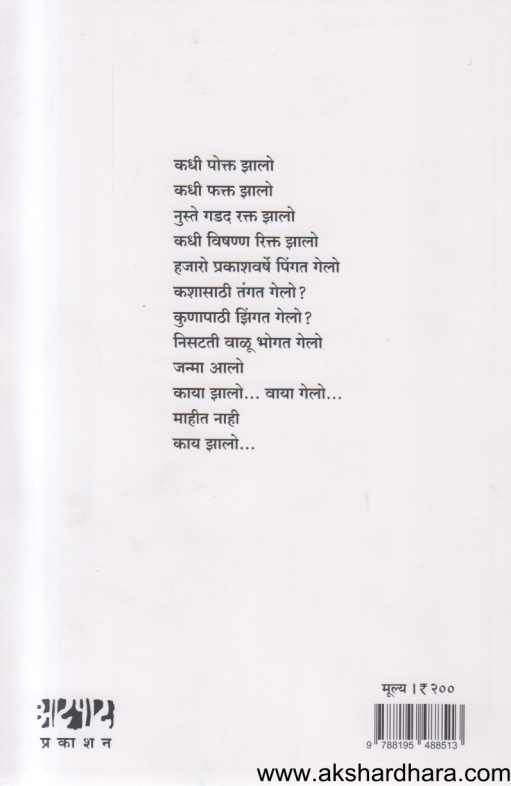 कधी पोक्त झालो
कधी फक्त झालो
नुस्ते गडद रक्त झालो
कधी विषण्ण रिक्त झालो
हजारो प्रकाशवर्षे पिंगत गेलो
कशासाठी तंगत गेलो?
कुणापाठी झिंगत गेलो?
निसटती वाळू भोगत गेलो
जन्मा आलो
काया झालो... वाया गेलो...
माहीत नाही
काय झालो...
प्रकाशन
मूल्य । ₹ २००
9 788195 488513
www.akshardhara.com